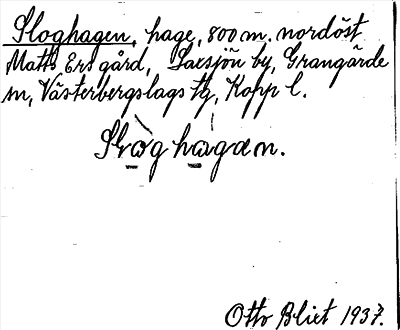 Sloghagen, hage, 800 m. nordöst
Matts Ers gård, Saxsjön by, Grangärde
sn, Västerbergslags tg, Kopp l.
Slòghagæn.
Otto Blixt 1937.